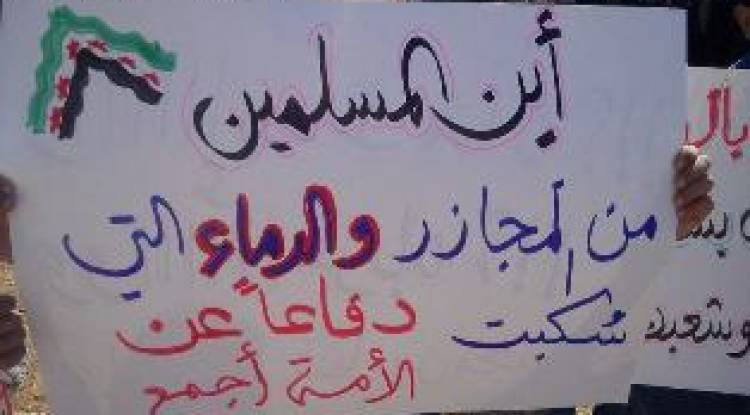 أين المسلمين
من المجازر والدماء التي
سُكبت دفاعاً عن
الأمة أجمع